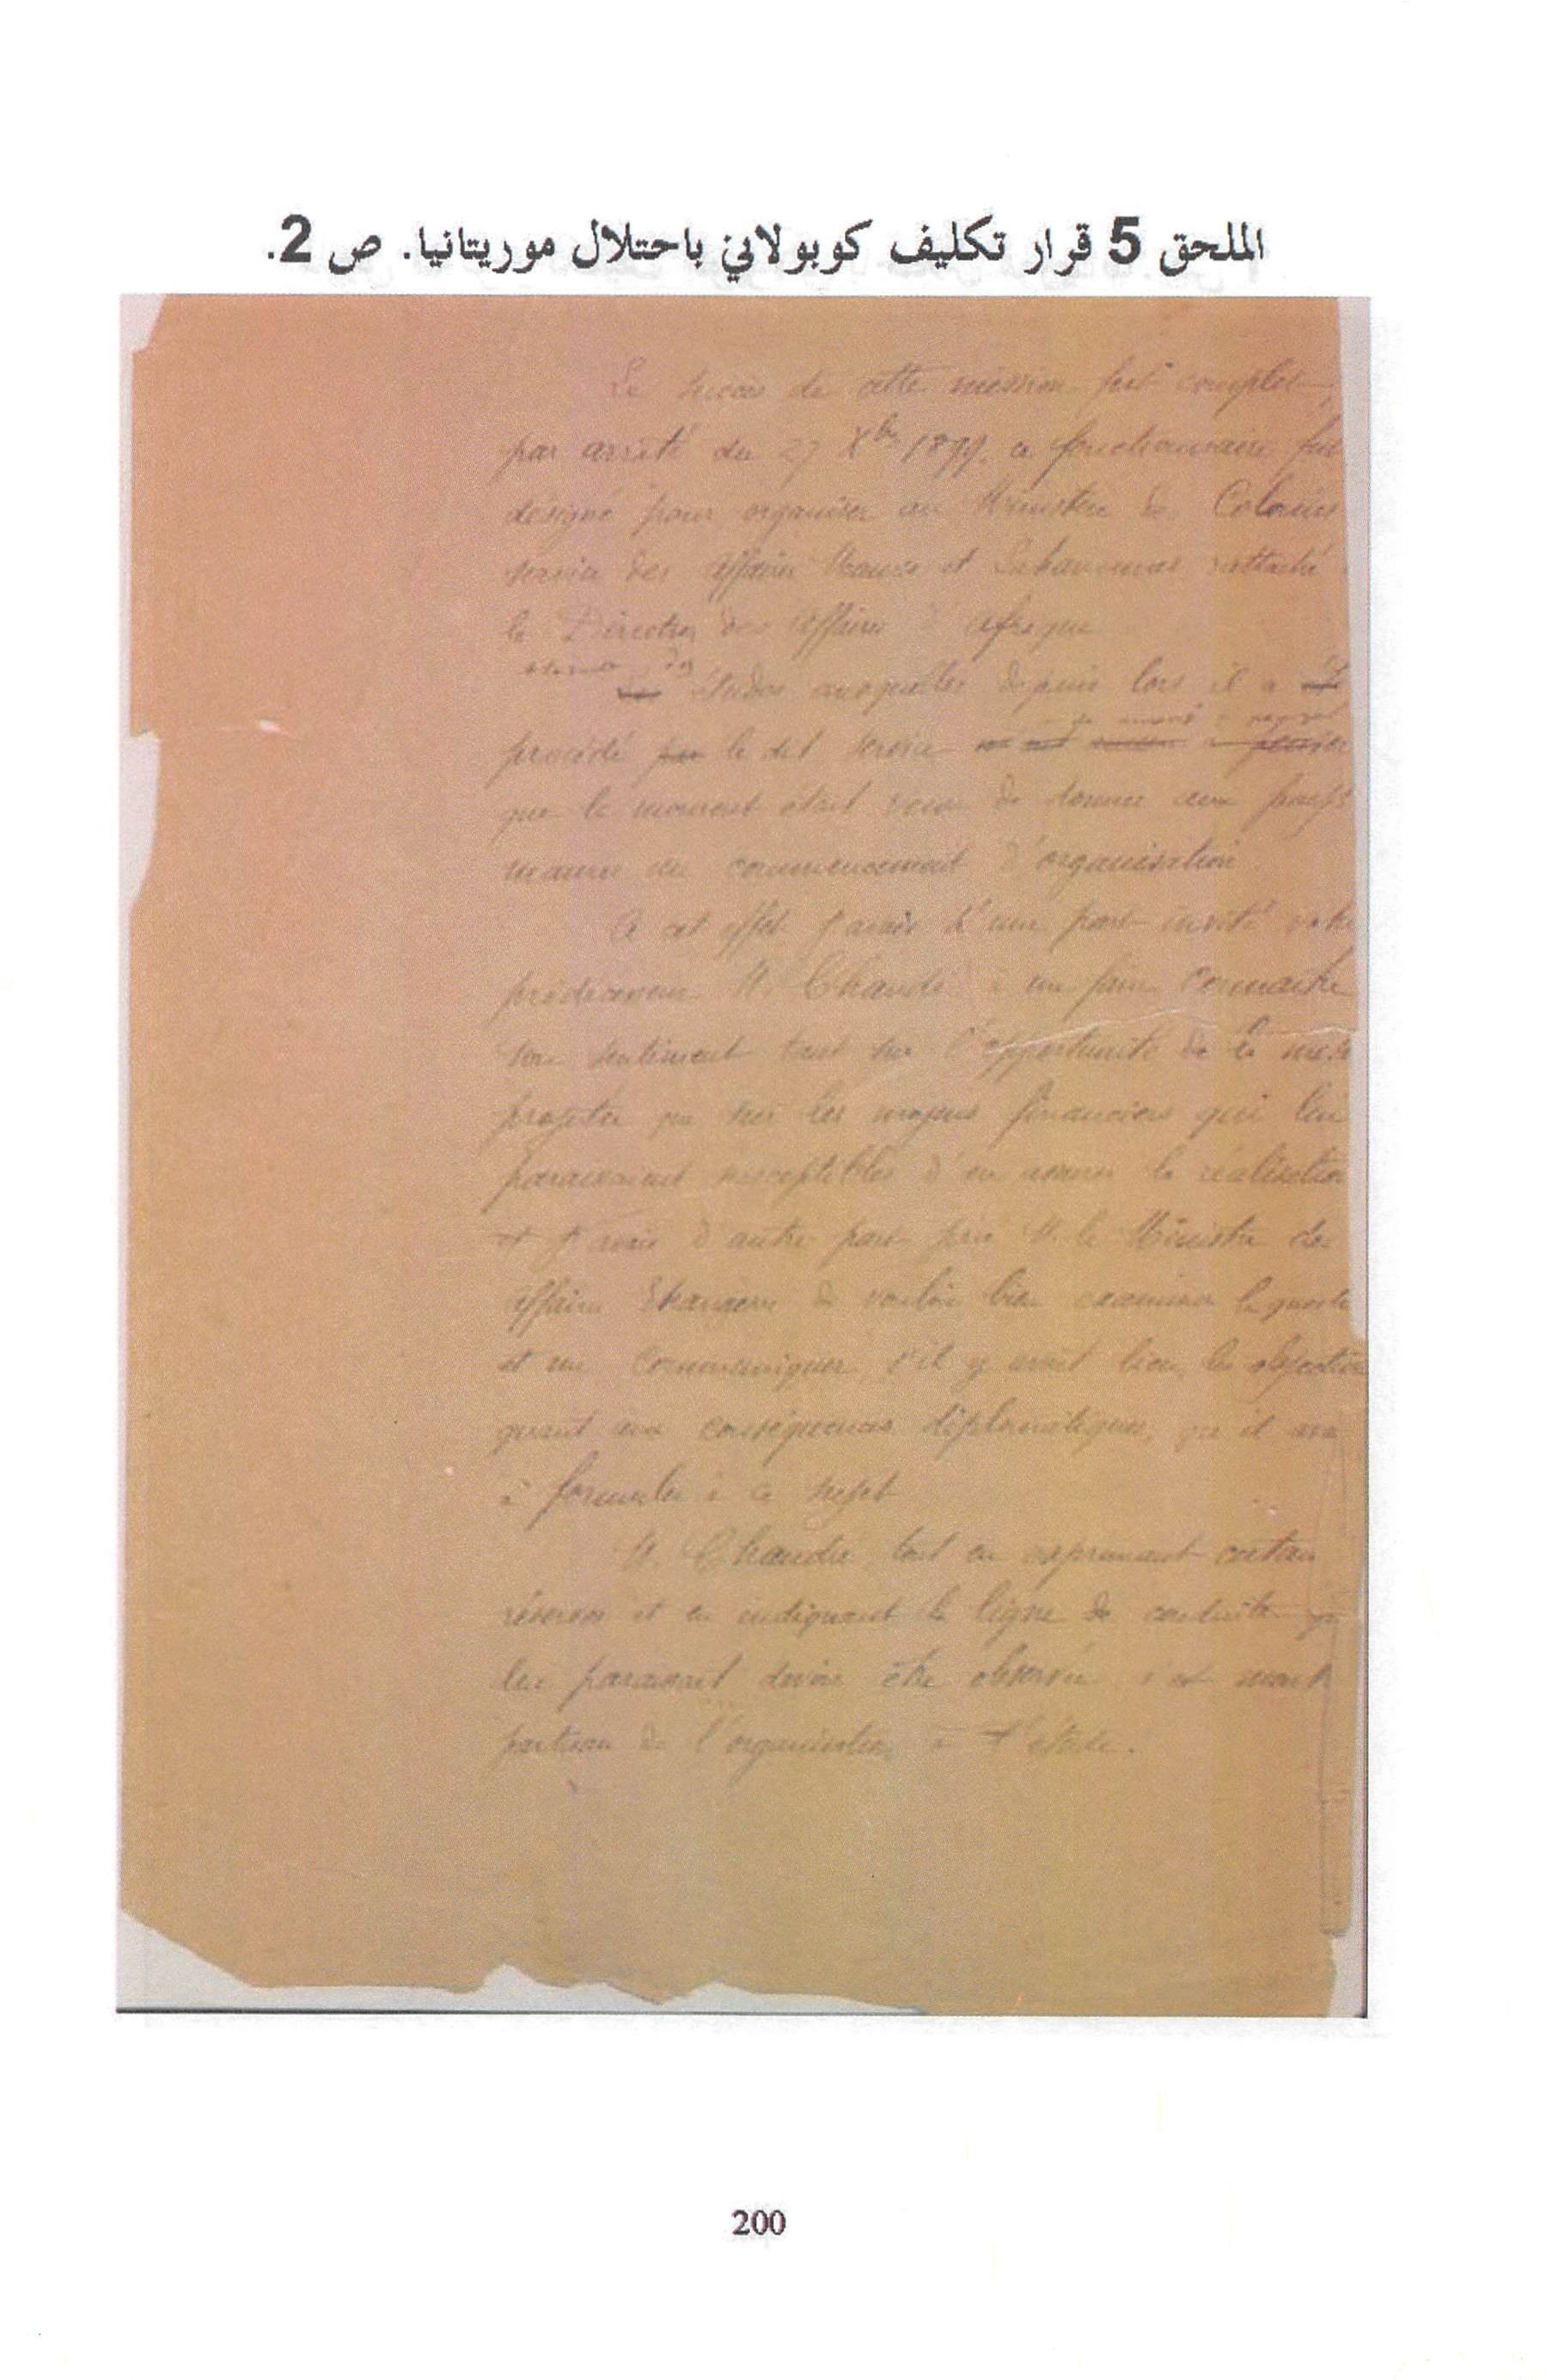 الملحق 5 قرار تكليف كوبولاني باحتلال موريتانيا. ص 2.
Le succès de cette mission fut complet;
par arrêté du 27 Xbre 1899, ce fonctionnaire fut
désigné pour organiser au Ministère des Colonies
service des affaires Maures et Sahariennes, rattaché
la Direction des Affaires d'Afrique
des
études auxquelles depuis lors il a
procédé par le dit service
que le moment était venu de donner aux pays
maures un commencement d'organisation
A cet effet j'avais d'une part invité votre
prédécesseur M. Chaudié à me faire connaître
son sentiment tant sur l'opportunité de la
projetée que sur les moyens financiers qui lui
paraissaient susceptibles d'en assurer la réalisation
et j'avais d'autre part prié M. le Ministre des
affaires Etrangères de vouloir bien examiner la
et me communiquer, s'il y avait lieu, les objections
quant aux conséquences diplomatiques, qu'il
à formuler à ce sujet
M. Chaudié, tout en exprimant
réserves et en indiquant la ligne de conduite
lui paraissait devoir être observée s'est
partisan de l'organisation à l'étude.
200